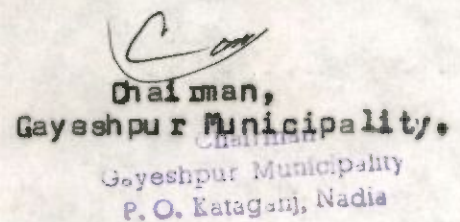 Chairman,
Gayeshpur Municipality.
Chairman
Gayeshpur Municipality
P. O. Kataganj, Nadia